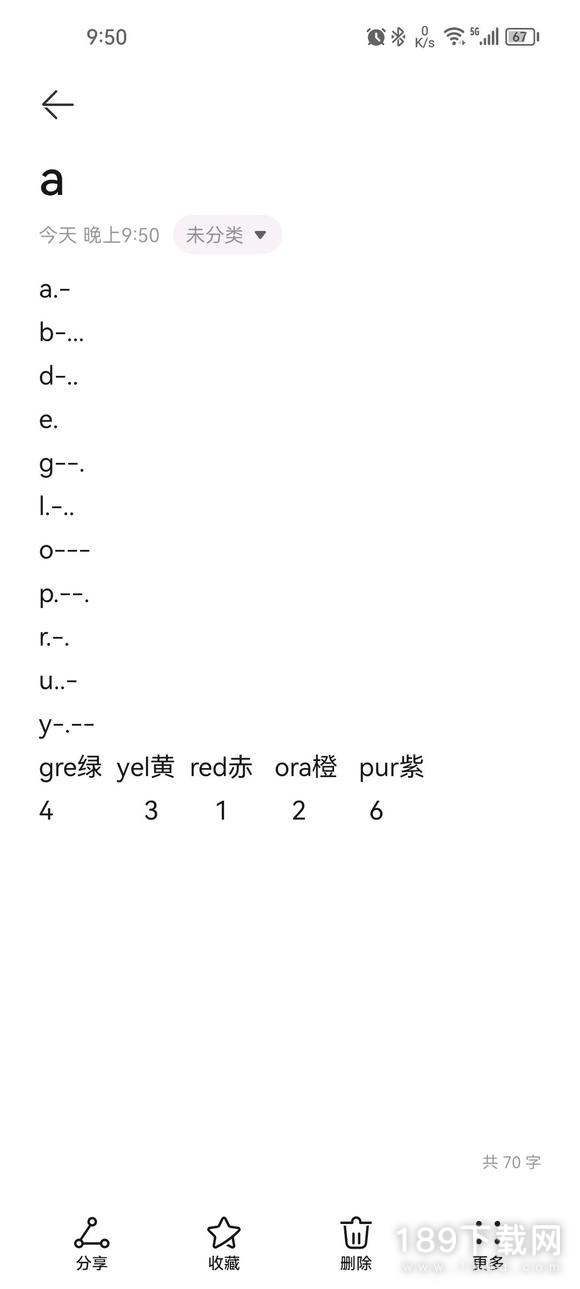 9:50 0 K/s 5G 67
a
今天 晚上9:50 未分类
a.-
b-...
d-..
e.
g--.
l.-..
o---
p.--.
r.-.
u..-
y-.--
gre绿 yel黄 red赤 ora橙 pur紫
4 3 1 2 6
共 70 字
分享 收藏 删除 更多
189下载网